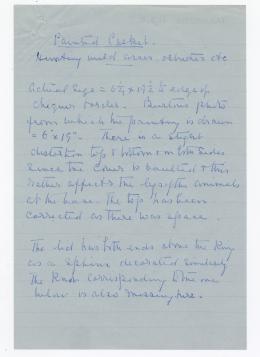 Painted Casket.
Hunting wild asses, ostriches etc
Actual size = 6 ¾ x 19 ½ to edge of
chequer border. Burton's photo
from which the painting is drawn
= 6" x 19". There is a slight
distortion top & bottom & on both sides
since the cover is vaulted & this
rather affects the legs of the animals
at the base. The top has been
corrected as there was space.
The lid has both ends above the King
as a sphinx decorated similarly
The knob corresponding to the one
below is also missing here.